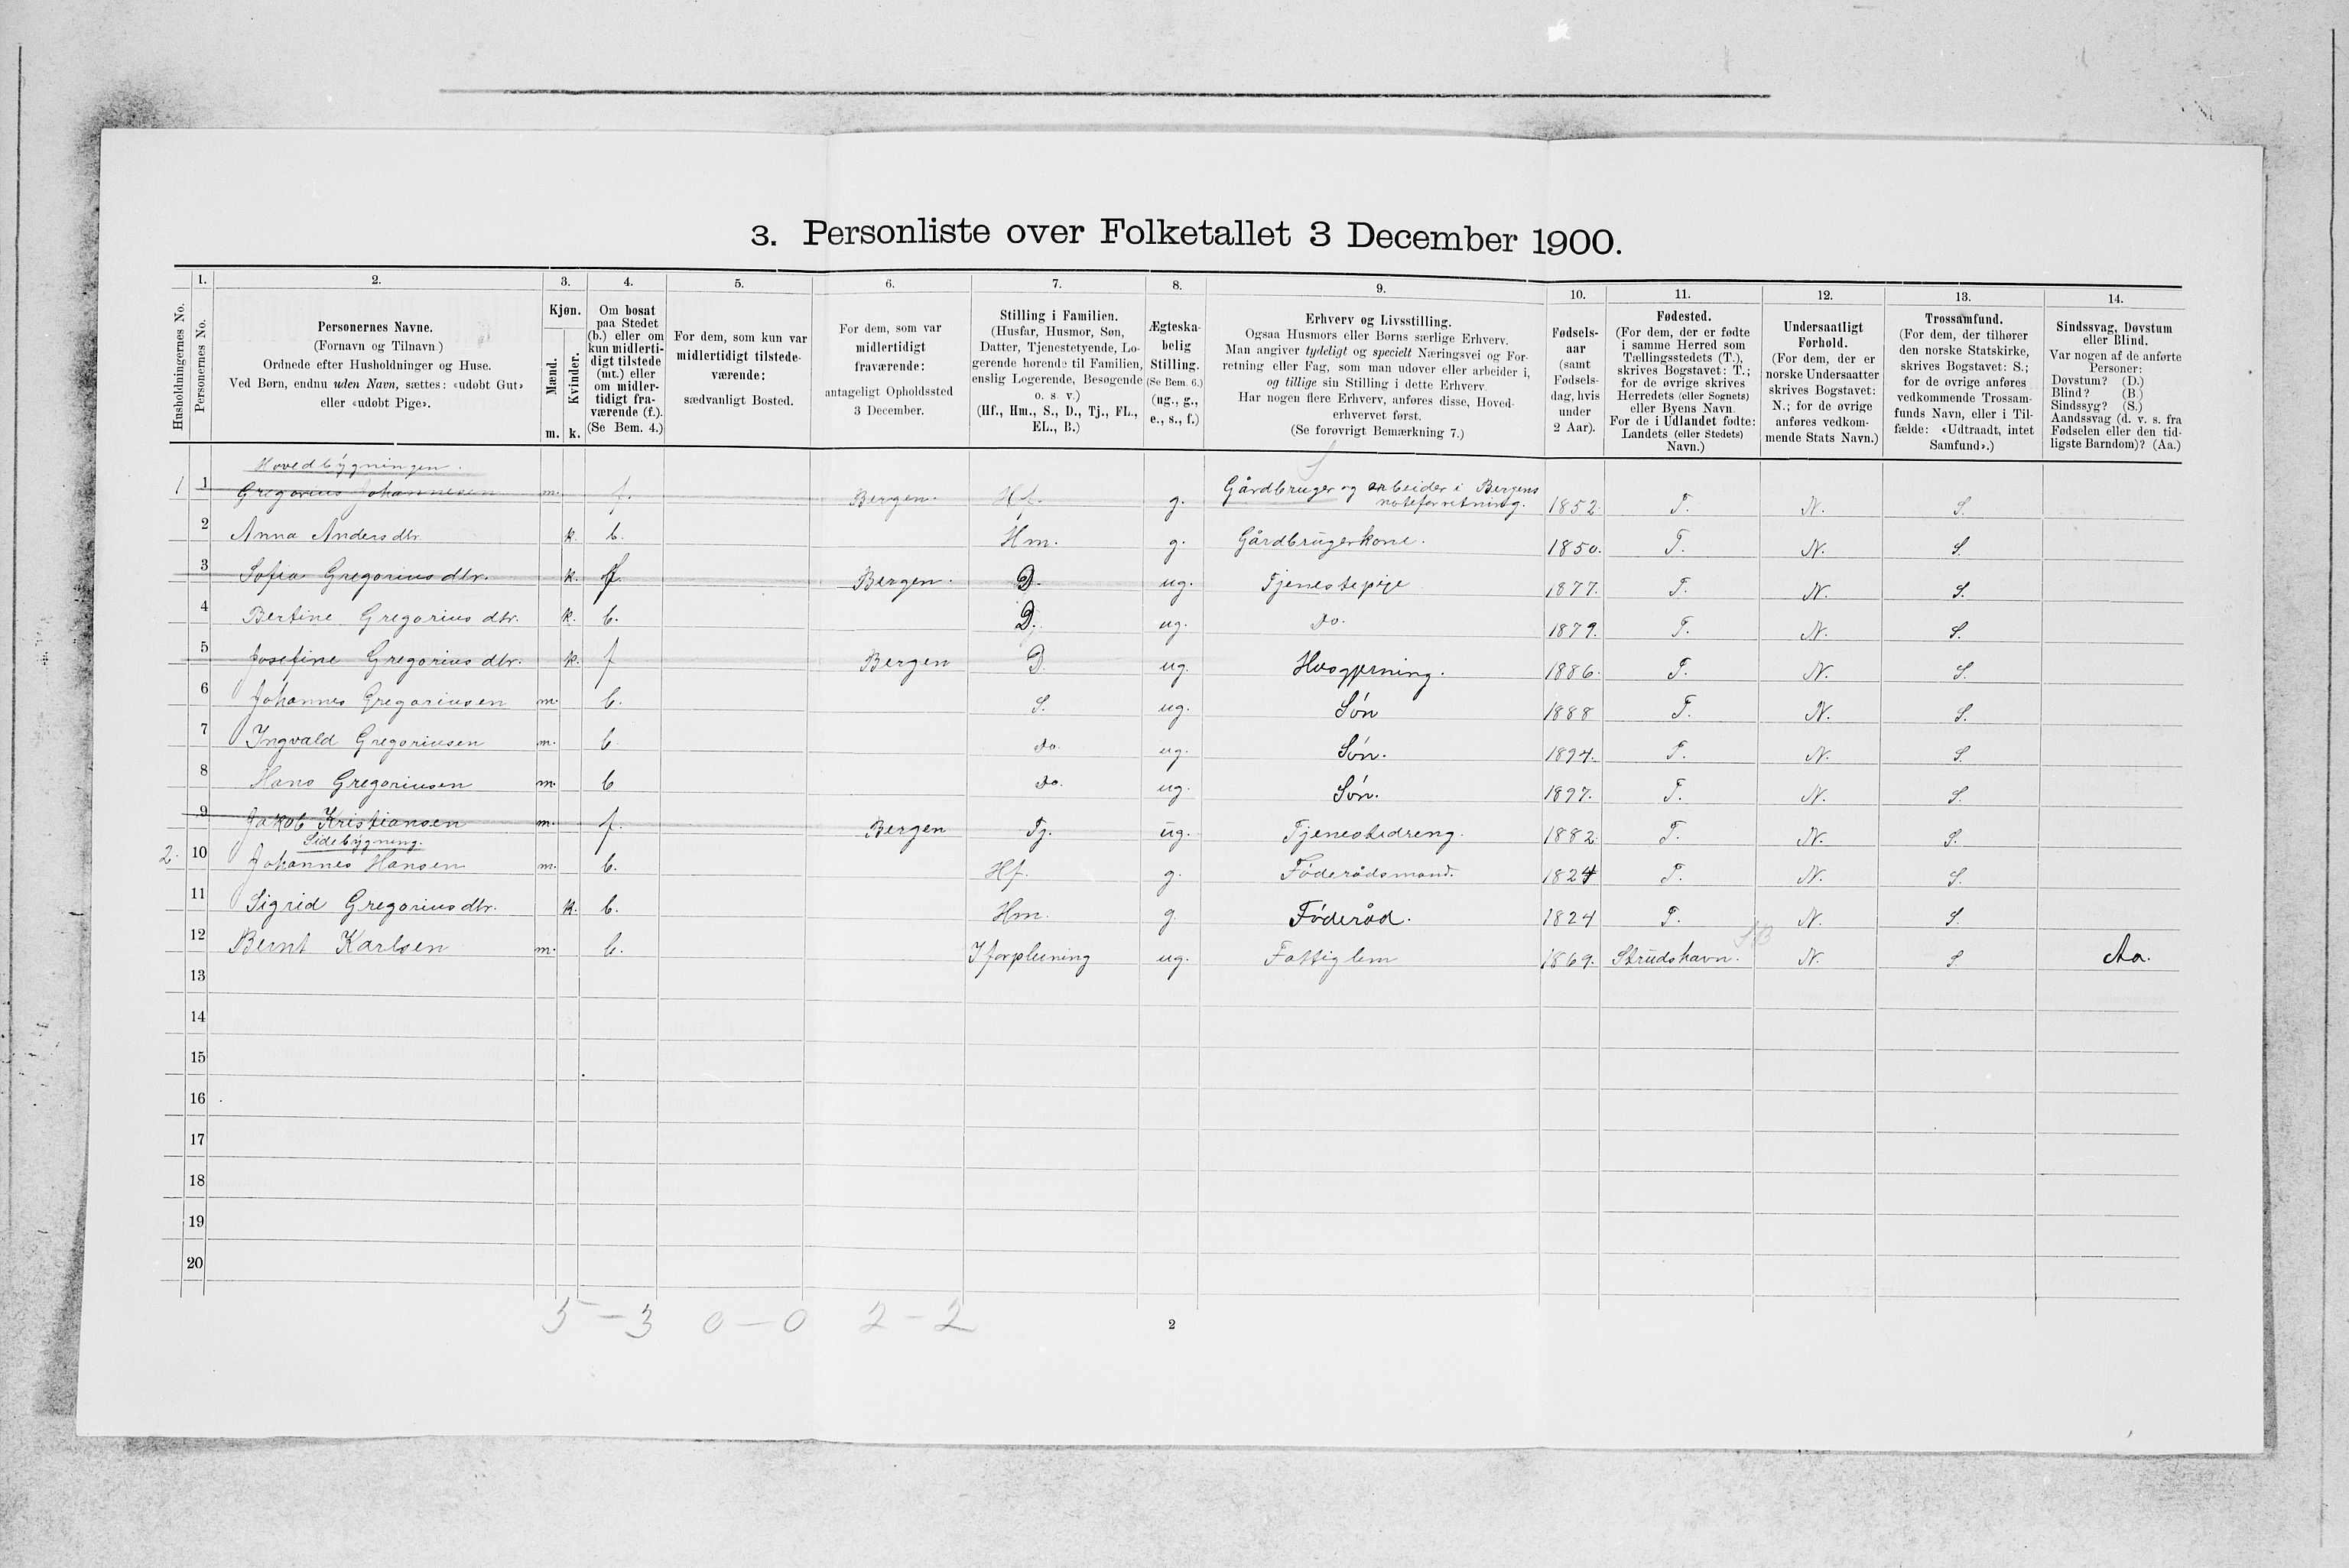 3. Personliste over Folketallet 3 December 1900.
Husholdningernes No.
1.
Personernes No.
2.
Personernes Navne.
(Fornavn og Tilnavn)
Ordnede efter Husholdninger og Huse.
Ved Børn, endnu uden Navn, sættes: «udøbt Gut»
eller «udøbt Pige».
3.
Kjøn.
Mænd.
Kvinder.
m. k.
4.
Om bosat
paa Stedet
(b.) eller om
kun midlerti-
digt tilstede
(mt.) eller
om midler-
tidigt fra-
værende (f.).
(Se Bem. 4.)
5.
For dem, som kun var
midlertidigt tilstede-
værende:
sædvanligt Bosted.
6.
For dem, som var
midlertidigt
fraværende:
antageligt Opholdssted
3 December.
7.
Stilling i Familien.
(Husfar, Husmor, Søn,
Datter, Tjenestetyende, Lo-
gerende hørende til Familien,
enslig Logerende, Besøgende
o. s. v.)
(Hf., Hm., S., D., Tj., FL.,
EL., B.)
8.
Ægteska-
belig
Stilling.
(Se Bem. 6.)
(ug., g.,
e., s., f.)
9.
Erhverv og Livsstilling.
Ogsaa Husmors eller Børns særlige Erhverv.
Man angiver tydeligt og specielt Næringsvei og For-
retning eller Fag, som man udøver eller arbeider i,
og tillige sin Stilling i dette Erhverv.
Har nogen flere Erhverv, anføres disse, Hoved-
erhvervet først.
(Se forøvrigt Bemærkning 7.)
10.
Fødsels-
aar
(samt
Fødsels-
dag, hvis
under
2 Aar).
11.
Fødested.
(For dem, der er fødte
i samme Herred som
Tællingsstedets (T.),
skrives Bogstavet: T.;
for de øvrige skrives
Herredets (eller Sognets)
eller Byens Navn.
For de i Udlandet fødte:
Landets (eller Stedets)
Navn.)
12.
Undersaatligt
Forhold.
(For dem, der er
norske Undersaatter
skrives Bogstavet:
N.; for de øvrige
anføres vedkom-
mende Stats Navn.)
13.
Trossamfund.
(For dem, der tilhører
den norske Statskirke,
skrives Bogstavet: S.;
for de øvrige anføres
vedkommende Trossam-
funds Navn, eller i Til-
fælde: «Udtraadt, intet
Samfund».)
14.
Sindssvag, Døvstum
eller Blind.
Var nogen af de anførte
Personer:
Døvstum? (D.)
Blind? (B.)
Sindssyg? (S.)
Aandssvag (d. v. s. fra
Fødselen eller den tid-
ligste Barndom)? (Aa.)
Hovedbygningen.
1 1 Gregorius Johannesen m. f. Bergen. Hf. g. Gårdbruger og arbeider i Bergens
noteforretning. 1852. T. N. S.
2 Anna Andersdtr. k. b. Hm. g. Gårdbrugerkone. 1850. T. N. S.
3 Sofia Gregoriusdtr. k. f. Bergen. D. ug. Tjenestepige 1877. T. N. S.
4 Bertine Gregoriusdtr. k. b. D. ug. do. 1879. T. N. S.
5 Josefine Gregoriusdtr. k. f Bergen D. ug. Husgjerning. 1886. T. N. S.
6 Johannes Gregoriusen m. b. S. ug. Søn 1888 T. N. S.
7 Ingvald Gregoriusen m. b. do. ug. Søn. 1894. T. N. S.
8 Hans Gregoriusen m. b do. ug. Søn. 1897. T. N. S.
9 Jakob Kristiansen m. f. Bergen Tj. ug. Tjenestedreng. 1882. T. N. S.
Sidebygning.
2. 10 Johannes Hansen m. b. Hf. g. Føderådsmand. 1824 T. N. S.
11 Sigrid Gregoriusdtr. k. b. Hm. g. Føderåd. 1824 T. N. S.
12 Bernt Karlsen m. b. I forpleining ug. Fattiglem 1869. Strudshavn. N. S. Aa.
13
14
15
16
17
18
19
20
5 - 3 0 - 0 2 - 2
2